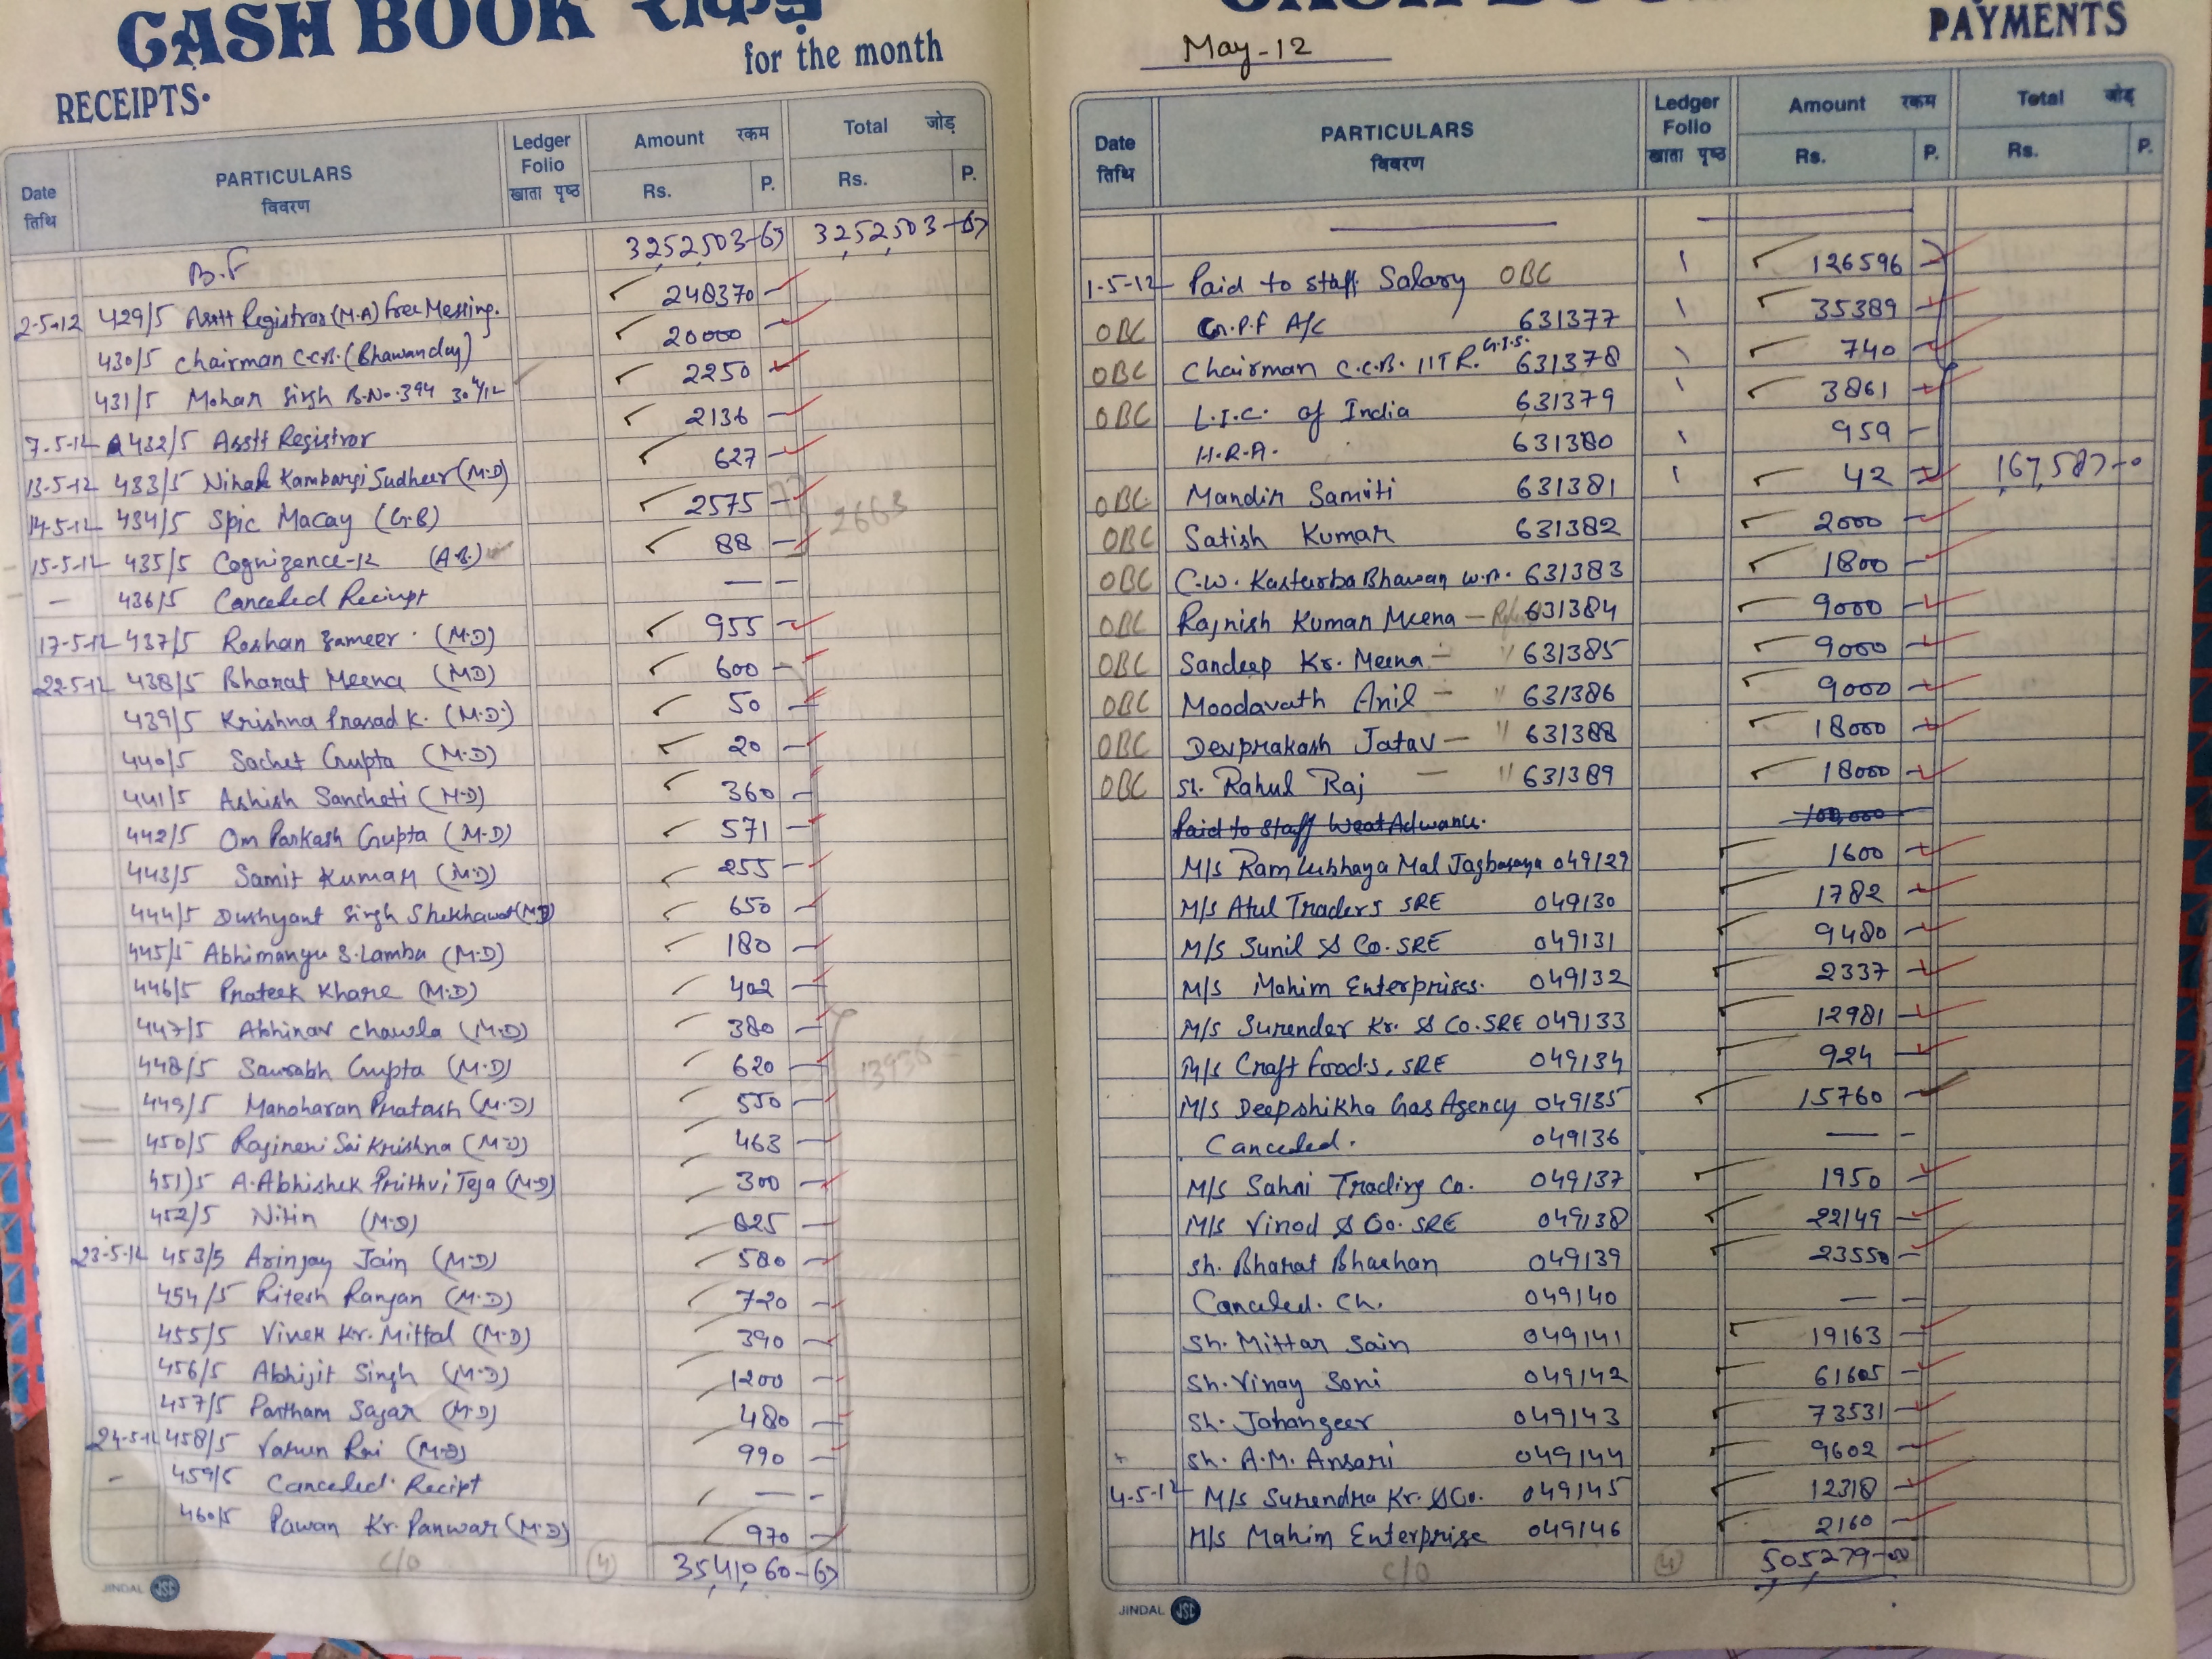 CASH BOOK रोकड़
for the month
RECEIPTS.
Date तिथि PARTICULARS विवरण Ledger Folio खाता पृष्ठ Amount रकम Rs. P. Total जोड़ Rs. P.
B.F 32,52,503-67 32,52,503-67
2-5-12 429/5 Asstt Registrar (M.A) Free Messing. 248370-
430/5 Chairman C.C.A. (Bhawanday) 20000-
431/5 Mohan Singh B.No. 394 30/4/12 2250-
2136-
7-5-12 432/5 Asstt Registrar 627-
13-5-12 433/5 Nihal Kambanyi Sudheer (M.D) 2575-
14-5-12 434/5 Spic Macay (G.B) 88-
15-5-12 435/5 Cognizance-12 (A.B.)
- 436/5 Canceled Reciept - -
17-5-12 437/5 Roshan Sameer. (M.D) 955-
22-5-12 438/5 Bharat Meena (M.D) 600-
439/5 Krishna Prasad K. (M.D) 50-
440/5 Sachet Gupta (M.D) 20-
441/5 Ashish Sancheti (M.D) 360-
442/5 Om Parkash Gupta (M.D) 571-
443/5 Samit Kumar (M.D) 255-
444/5 Dushyant Singh Shekhawat (M.D) 650-
445/5 Abhimanyu S. Lamba (M.D) 180-
446/5 Prateek Khare (M.D) 402-
447/5 Abhinav Chawla (M.D) 380-
448/5 Saurabh Gupta (M.D) 620-
449/5 Manoharan Pratash (M.D) 550-
450/5 Rajineni Sai Krishna (M.D) 463-
451/5 A. Abhishek Prithvi Teja (M.D) 300-
452/5 Nitin (M.D) 825-
23-5-12 453/5 Arinjay Jain (M.D) 580-
454/5 Ritesh Ranjan (M.D) 720-
455/5 Vivek Kr. Mittal (M.D) 390-
456/5 Abhijit Singh (M.D) 1200-
457/5 Partham Sagar (M.D) 480-
24-5-12 458/5 Varun Rai (M.D) 990-
459/5 Canceled. Recipt - -
460/5 Pawan Kr. Panwar (M.D) 970-
C/O 4 35,41,060-67
2663
13936
JINDAL JSC
May-12
PAYMENTS
Date तिथि PARTICULARS विवरण Ledger Folio खाता पृष्ठ Amount रकम Rs. P. Total जोड़ Rs. P.
1-5-12 Paid to Staff Salary OBC 126596-
OBC G.P.F A/C 631377 35389-
OBC Chairman C.C.B. IITR. G.I.S. 631378 740-
OBC L.I.C. of India 631379 3861-
H.R.A. 631380 959-
OBC Mandir Samiti 631381 42- 1,67,587-0
OBC Satish Kumar 631382 2000-
OBC C.W. Kasturba Bhawan W.A. 631383 1800-
OBC Rajnish Kumar Meena 631384 9000-
OBC Sandeep Kr. Meena - " 631385 9000-
OBC Moodavath Anil - " 631386 9000-
OBC Devprakash Jatav - " 631388 18000-
OBC Sh. Rahul Raj - " 631389 18000-
Paid to Staff Advance. 100,000
M/s Ram Lubhaya Mal 049129 1600-
M/s Atul Traders SRE 049130 1782-
M/s Sunil & Co. SRE 049131 9480-
M/s Mahim Enterprises. 049132 2337-
M/s Surender Kr. & Co. SRE 049133 12981-
M/s Craft Foods. SRE 049134 924-
M/s Deepshikha Gas Agency 049135 15760-
Canceled. 049136 - -
M/s Sahni Trading Co. 049137 1950-
M/s Vinod & Co. SRE 049138 22149-
Sh. Bharat Bhushan 049139 23550-
Canceled. Ch. 049140 - -
Sh. Mittar Sain 049141 19163-
Sh. Vinay Soni 049142 61605-
Sh. Jahangeer 049143 73531-
" Sh. A.M. Ansari 049144 9602-
4-5-12 M/s Surendra Kr. & Co. 049145 12318-
M/s Mahim Enterprise 049146 2160-
C/O 4 505279-00
JINDAL JSC